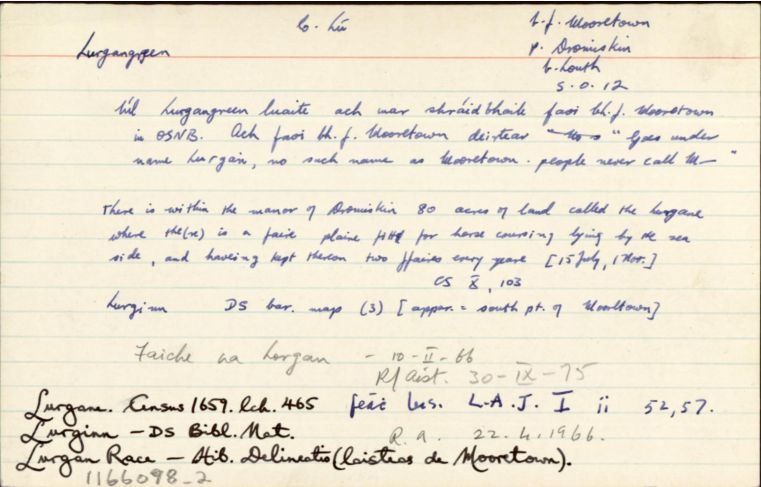 Co. Lú
b.f. Mooretown
p. Dromiskin
b. Louth
S.O. 12
Lurgangreen
Níl Lurgangreen luaite ach mar shráidbhaile faoi bh.f. Mooretown
in OSNB. Ach faoi bh.f. Mooretown deirtear " Goes under
name Lurgan, no such name as Mooretown. people never call M— "
There is within the manor of Dromiskin 80 acres of land called the Lurgane
where the(re) is a faire plaine fitt for horse coursing lying by the sea
side, and haveing kept thereon two ffaires every yeare [15 July, 1 Nov.]
CS X, 103
Lurginn DS bar. map (3) [appar. = south pt. of Mooretown]
Faiche na Lorgan - 10-II-66
R/Aist. 30-IX-75
Lurgane. Census 1659. lch. 465 féac lus. L.A.J. I ii 52,57.
Lurginn - DS Bibl. Nat. R.A. 22.4.1966.
Lurgan Race - Hib. Delineatio (laisteas de Mooretown).
1166098_2